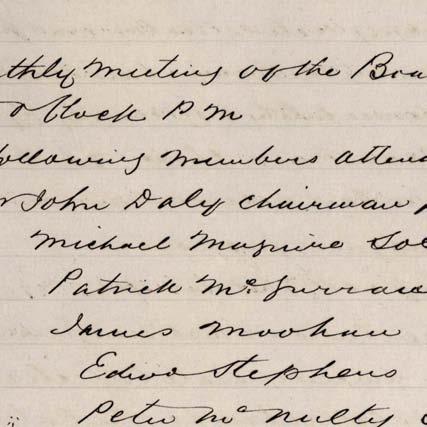 thly Meeting of the Boa
O Clock P M
ollowing Members atten
John Daly Chairman
Michael Maguire Soc
Patrick
James Moohan
Edwd Stephens
Peter McNulty